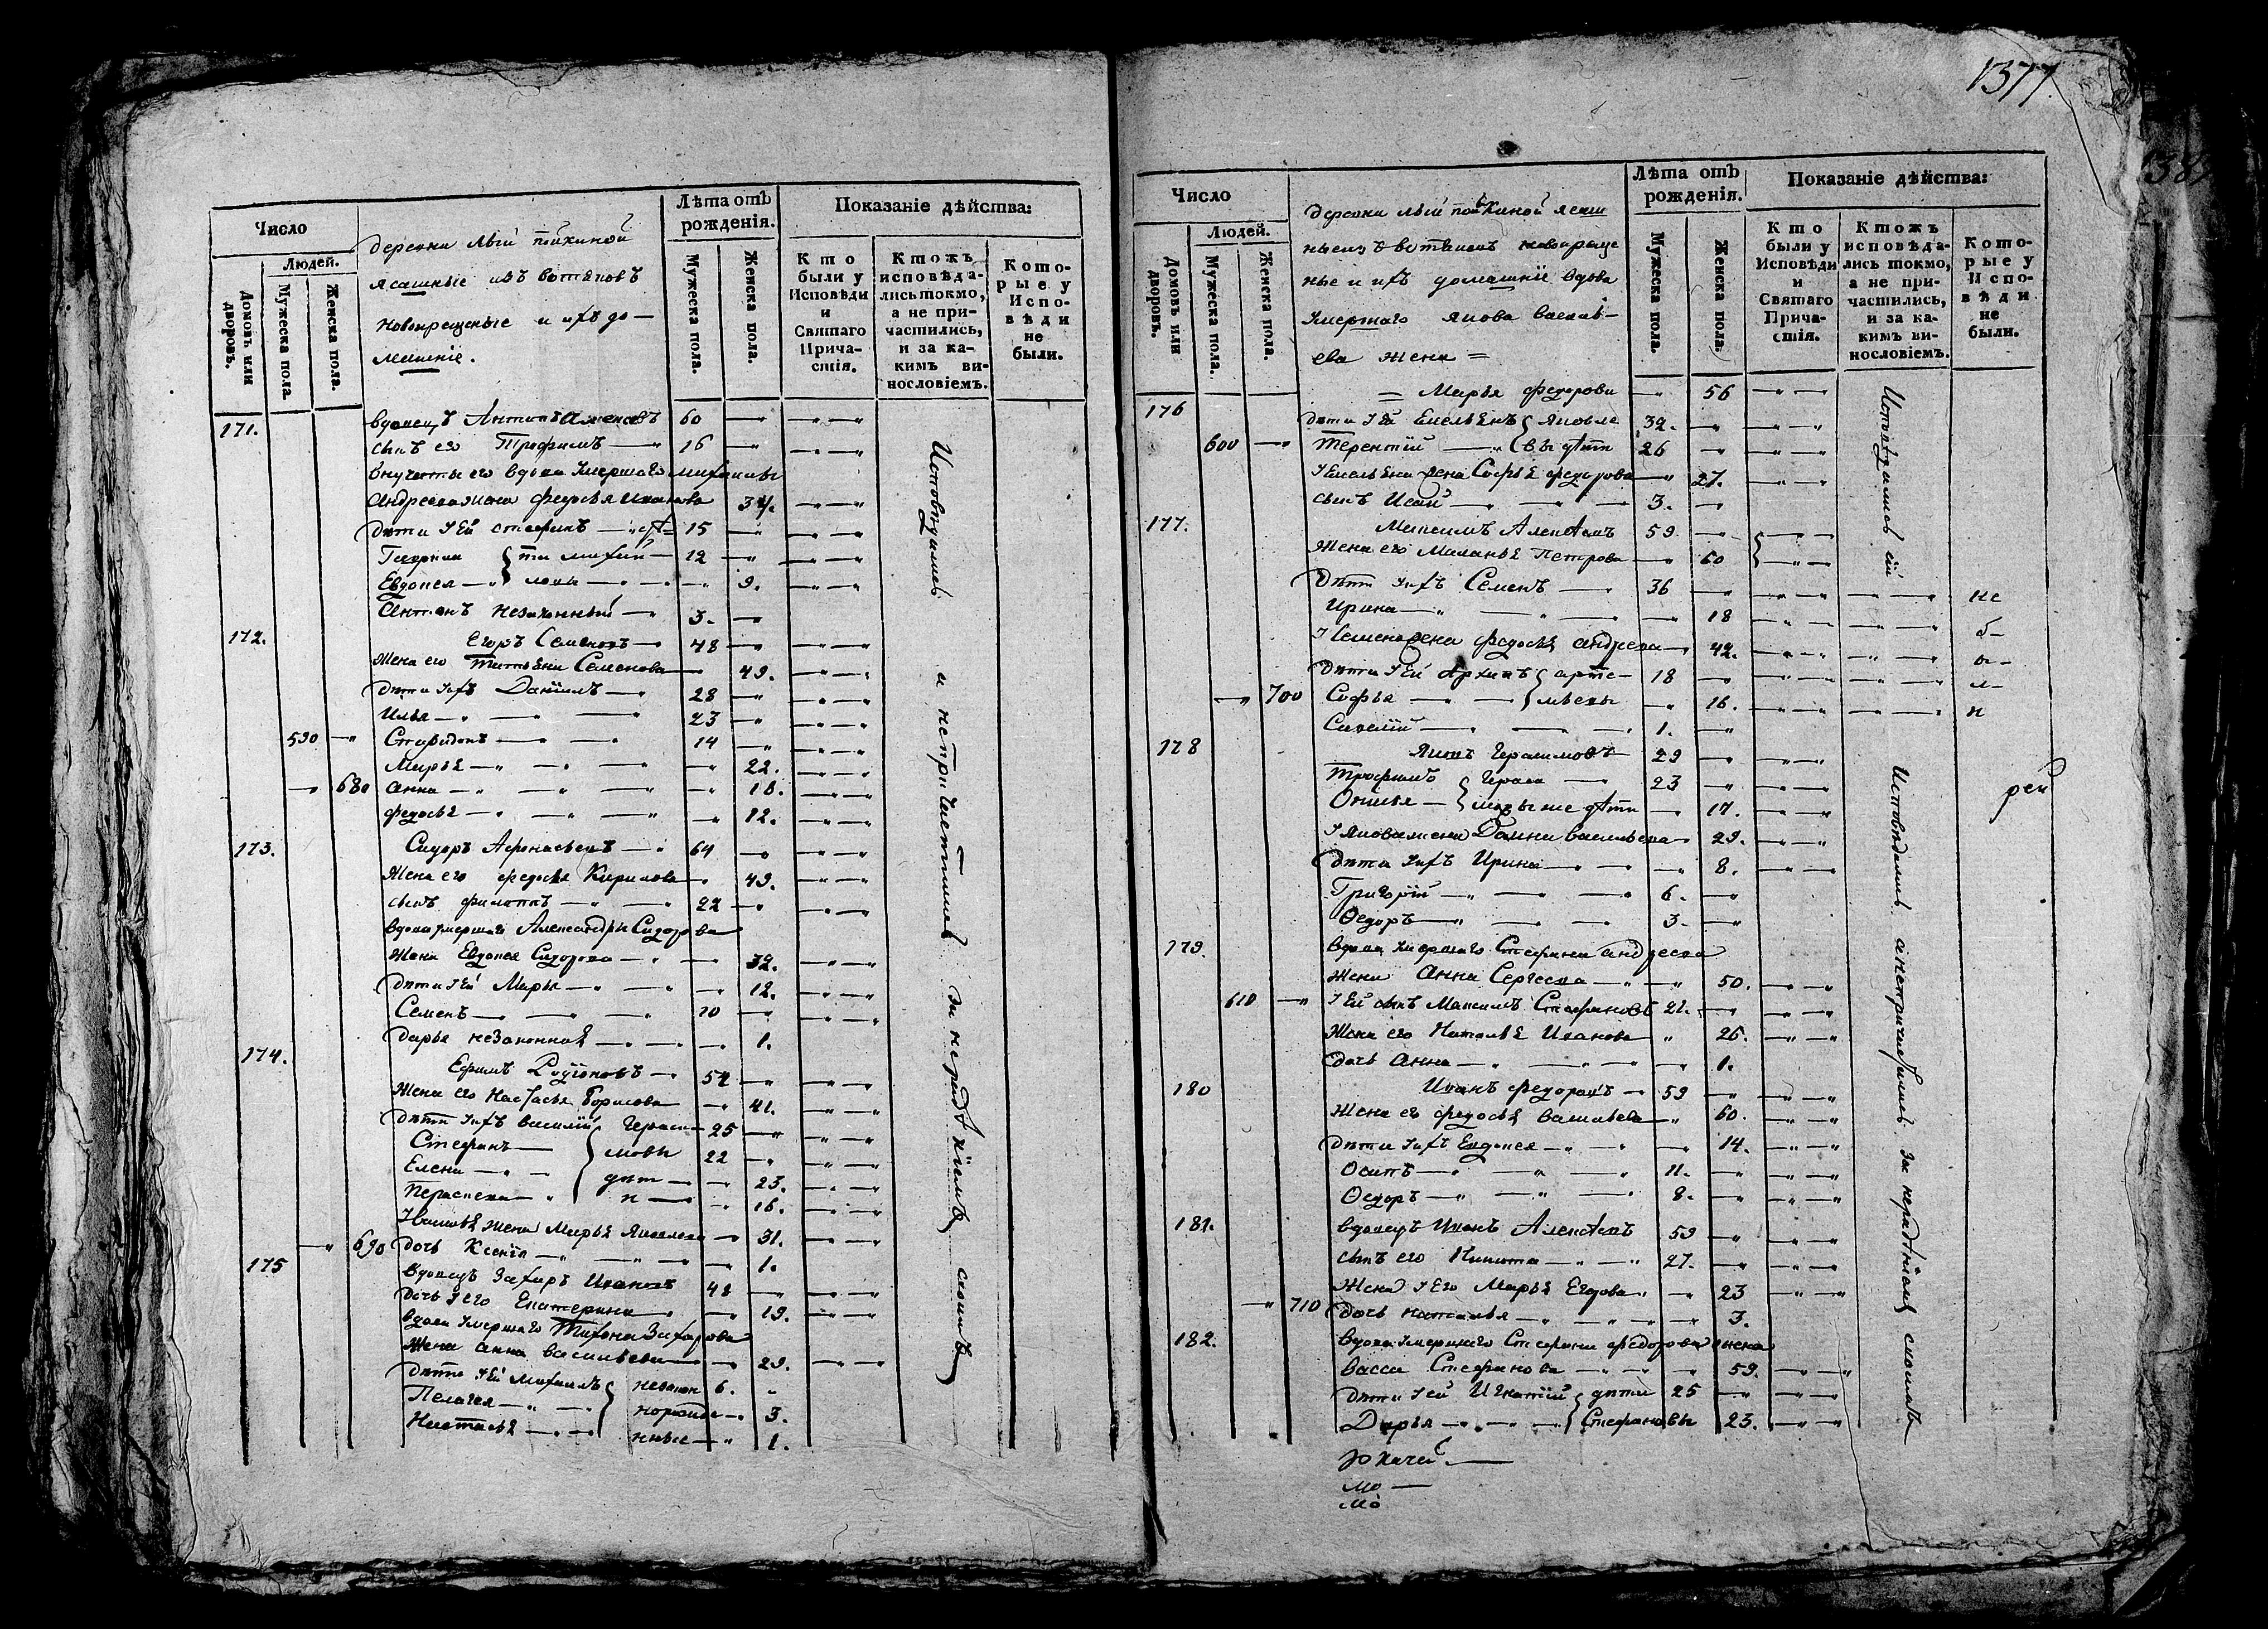 1377
Число
Лѣта отъ рожденія.
Показаніе дѣйства:
Людей.
Домовъ или дворовъ.
Мужеска пола.
Женска пола.
деревни
ясашные изъ вотяковъ
новокрещеные и ихъ до-
машніе.
Мужеска пола.
Женска пола.
Кто были у Исповѣди и Святаго Прича- стія.
Ктожъ исповѣда- лись токмо, а не при- частились, и за ка- кимъ ви- нословіемъ.
Кото- рые у Испо- вѣди не были.
171. вдовецъ Антипъ 60
сынъ его Трофимъ 16
внучаты его вдова умершаго
Андреева жена Федосья Иванова 34.
дѣти ея Стефанъ 15
12
Евдокея 9.
Антонъ незаконный 3.
172. Егоръ Семеновъ 48
жена его Татьяна Семенова 49.
дѣти ихъ Даніилъ 28
Илья 23
590 Спиридонъ 14
Марья 22.
680 Анна 18.
Федосья 12.
173. Сидоръ Афонасьевъ 64
жена его Федосья Кирилова 49.
сынъ Филиппъ 22
вдова умершаго Александры Сидорова
жена Евдокея Сидорова 32.
дѣти ея Марья 12.
Семенъ 10
Дарья незаконная 1.
174. Ефимъ Родіоновъ 52
жена его Настасья Борисова 41.
дѣти ихъ Василій 25
Стефанъ 22
Елена 23.
Параскева 16.
жена Марья Яковлева 31.
690 дочь Ксенія 1.
175 вдовецъ Захаръ Ивановъ 48
дочь его Екатерина 19.
вдова умершаго Тихона Захарова
жена Анна Васильева 29.
дѣти ея Михаилъ незакон 6.
Пелагея норожде 3.
Настасья нные 1.
Исповѣдались и непричастились за нерадѣніемъ своимъ
Число
Лѣта отъ рожденія.
Показаніе дѣйства:
Людей.
Домовъ или дворовъ.
Мужеска пола.
Женска пола.
деревни ясаш
ные изъ вотяковъ новокреще
ные и ихъ домашніе вдова
умершаго Якова Василь-
ева жена
Мужеска пола.
Женска пола.
Кто были у Исповѣди и Святаго Прича- стія.
Ктожъ исповѣда- лись токмо, а не при- частились, и за ка- кимъ ви- нословіемъ.
Кото- рые у Испо- вѣди не были.
176 Марья Федорова 56
дѣти ея Емельянъ Яковле 32.
600 Терентій вы дѣти 26
Емельяна жена Софья Федорова 27.
сынъ Исай 3.
177. Максимъ Алексѣевъ 59
жена его Маланья Петрова 60
дѣти ихъ Семенъ 36
Ирина 18
Семена жена Федосья Андреева 42.
дѣти ея Архипъ арте- 18
700 Софья мьевы 16.
Савелій 1.
178 Яковъ Герасимовъ 29
Трофимъ Гераси 23
мовы же дѣти 17.
Якова жена Домна Васильева 29.
дѣти ихъ Ирина 8.
Григорій 6.
Ѳедоръ 3.
179. вдова умершаго Стефана Андреева
жена Анна Сергеева 50.
610 ея сынъ Максимъ Стефановъ 22.
жена его Наталья Иванова 26.
дочь Анна 1.
180 Иванъ Федоровъ 59
жена его Федосья Васильева 60.
дѣти ихъ Евдокея 14.
Осипъ 11.
Ѳедоръ 8.
181. вдовецъ Иванъ Алексѣевъ 59
сынъ его Никита 27.
жена его Марья Егорова 23
710 дочь Наталья 3.
182. вдова умершаго Стефана Федорова жена
Васса Стефанова 59.
дѣти ея Игнатій дѣти 25
Дарья Стефановы 23.
Исповѣдались и непричастились за нерадѣніемъ своимъ
не
б-
ы-
л-
и
рей